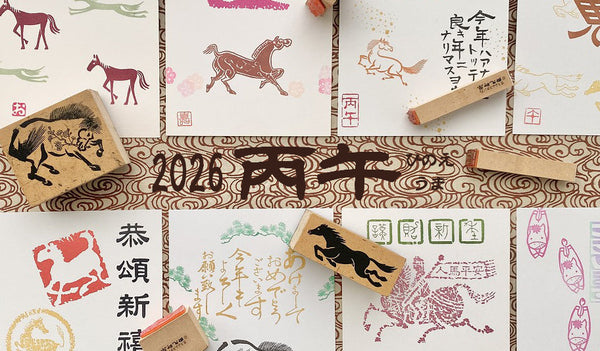 今年ハアナ
トッテ
良き年ニ
ナリマスヨ
丙午
嘉
午
2026 丙午 ひのえ
うま
恭頌新禧
あけまして
おめでとう
ございます
今年も
よろしく
お願い致し
謹賀新年
人馬平安